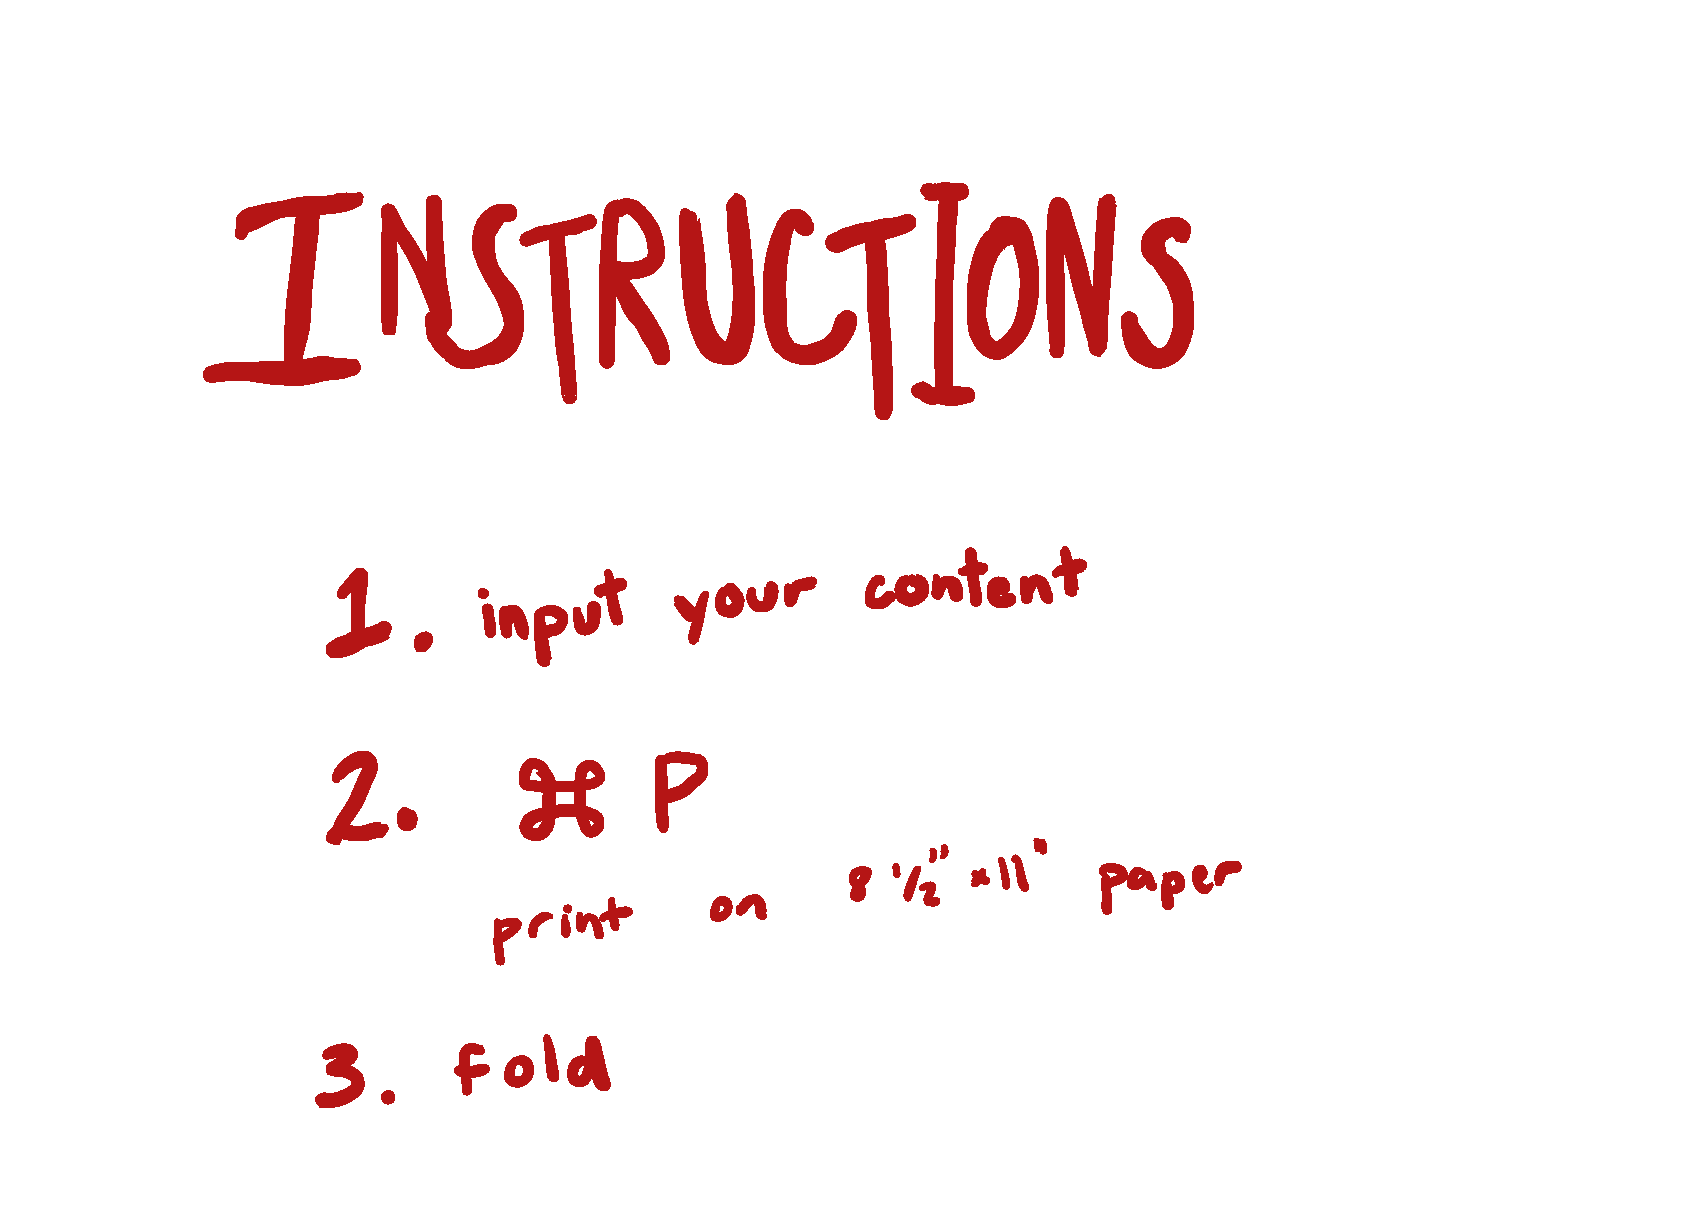 INSTRUCTIONS
1. input your content
2. ⌘ P
print on 8 1/2" x 11" paper
3. fold